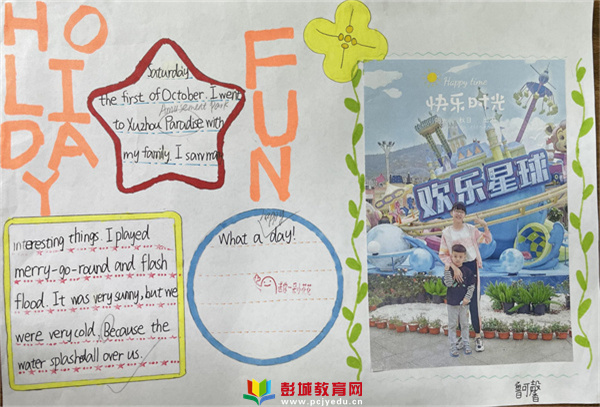 HOLIDAY
FUN
Saturday
the first of October. I went
Amusement Park
to Xuzhou Paradise with
my family. I saw many
interesting things. I played
merry-go-round and flash
flood. It was very sunny, but we
were very cold. Because the
water splashdall over us.
happy
What a day!
Happy time
快乐时光
欢乐星球
彭城教育网
www.pcjyedu.cn